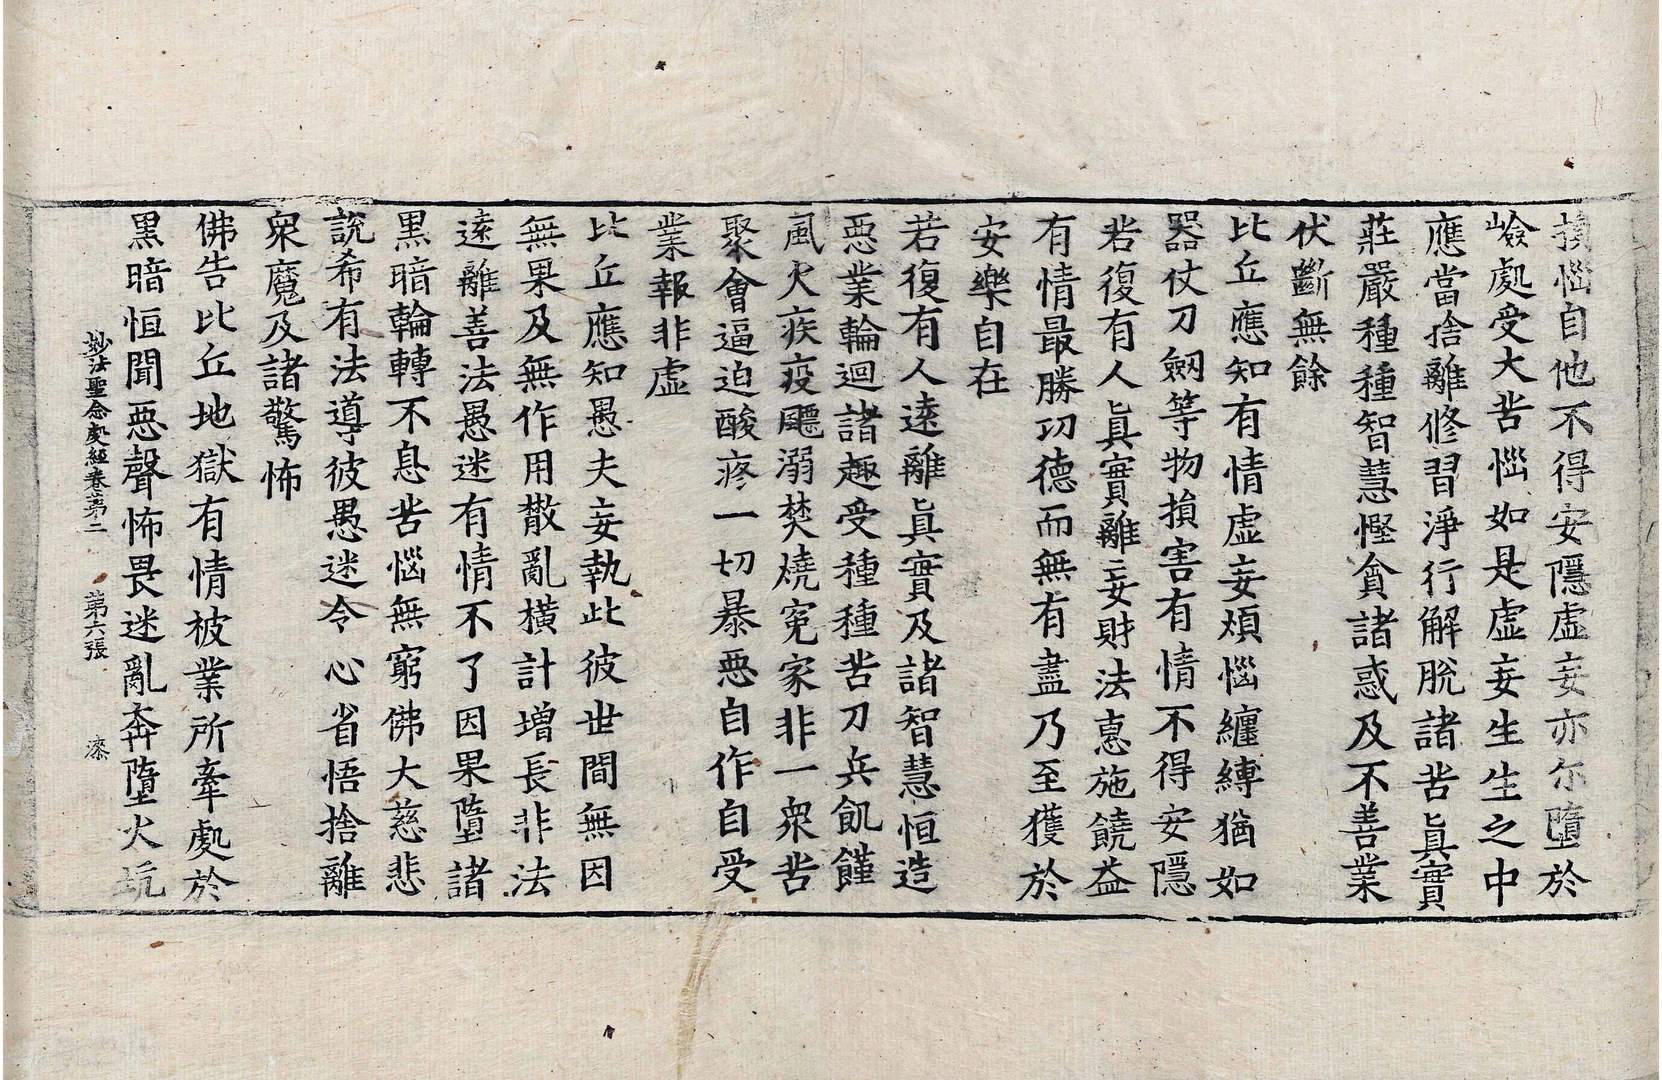 損惱自他不得安隱虛妄亦尒墮於
嶮處受大苦惱如是虛妄生生之中
應當捨離修習淨行解脫諸苦真實
莊嚴種種智慧慳貪諸惑及不善業
伏斷無餘
比丘應知有情虛妄煩惱纏縛猶如
器仗刀劒等物損害有情不得安隱
若復有人真實離妄財法惠施饒益
有情最勝功德而無有盡乃至獲於
安樂自在
若復有人遠離真實及諸智慧恒造
惡業輪迴諸趣受種種苦刀兵飢饉
風火疾疫飃溺焚燒寃家非一衆苦
聚會逼迫酸疼一切暴惡自作自受
業報非虛
比丘應知愚夫妄執此彼世間無因
無果及無作用散亂橫計增長非法
遠離善法愚迷有情不了因果墮諸
黑暗輪轉不息苦惱無窮佛大慈悲
說希有法導彼愚迷令心省悟捨離
衆魔及諸驚怖
佛告比丘地獄有情被業所牽處於
黑暗恒聞惡聲怖畏迷亂奔墮火坑
玅法聖念處經卷第二 第六張 漆